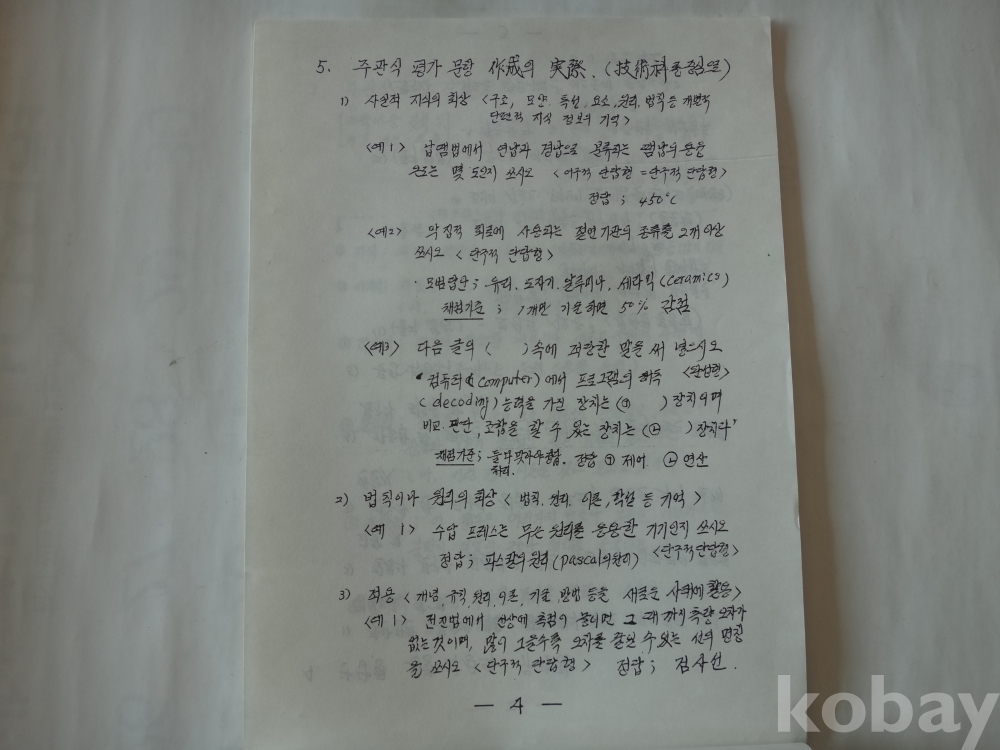 5. 주관식 평가 문항 作成의 実際. (技術科를 중심으로)
1) 사실적 지식의 회상 <구조, 모양, 특성, 요소, 원리, 법칙 등 개별적
단편적 지식 정보의 기억>
<예1> 납땜법에서 연납과 경납으로 분류되는 땜납의 용융
온도는 몇 도인지 쓰시오 <어구적 단답형 = 단구적 단답형>
정답 ; 450°C
<예2> 회로에 사용되는 절연 종류를 2개 이상
쓰시오 <단구적 단답형>
· 모범답안 ; 유리, 도자기, 알루미나, 세라믹 (ceramics)
채점기준 ; 1개만 기술하면 50% 감점
<예3> 다음 글의 ( ) 속에 적당한 말을 써 넣으시오
"컴퓨터(computer)에서 프로그램의 해독 <완성형>
(decoding) 능력을 가진 장치는 (㉠ ) 장치이며
비교 판단, 조합을 할 수 있는 장치는 (㉡ ) 장치다"
채점기준 ; 둘 다 맞아야 정답 처리. 정답 ㉠ 제어 ㉡ 연산
2) 법칙이나 원리의 회상 < 법칙, 원리, 이론, 학설 등 기억 >
<예 1> 수압 프레스는 무슨 원리를 응용한 기기인지 쓰시오
정답 ; 파스칼의 원리 (pascal의 원리) <단구적 단답형>
3) 적용 < 개념, 규칙, 원리, 이론, 기술, 방법 등을 새로운 사태에 활용>
<예 1> 전진법에서 선상에 측점이 물리면 그 때까지 측량 오차가
없는 것이며, 많이 그을수록 오차를 줄일 수 있는 선의 명칭
을 쓰시오 <단구적 단답형> 정답 ; 검사선.
— 4 —
kobay